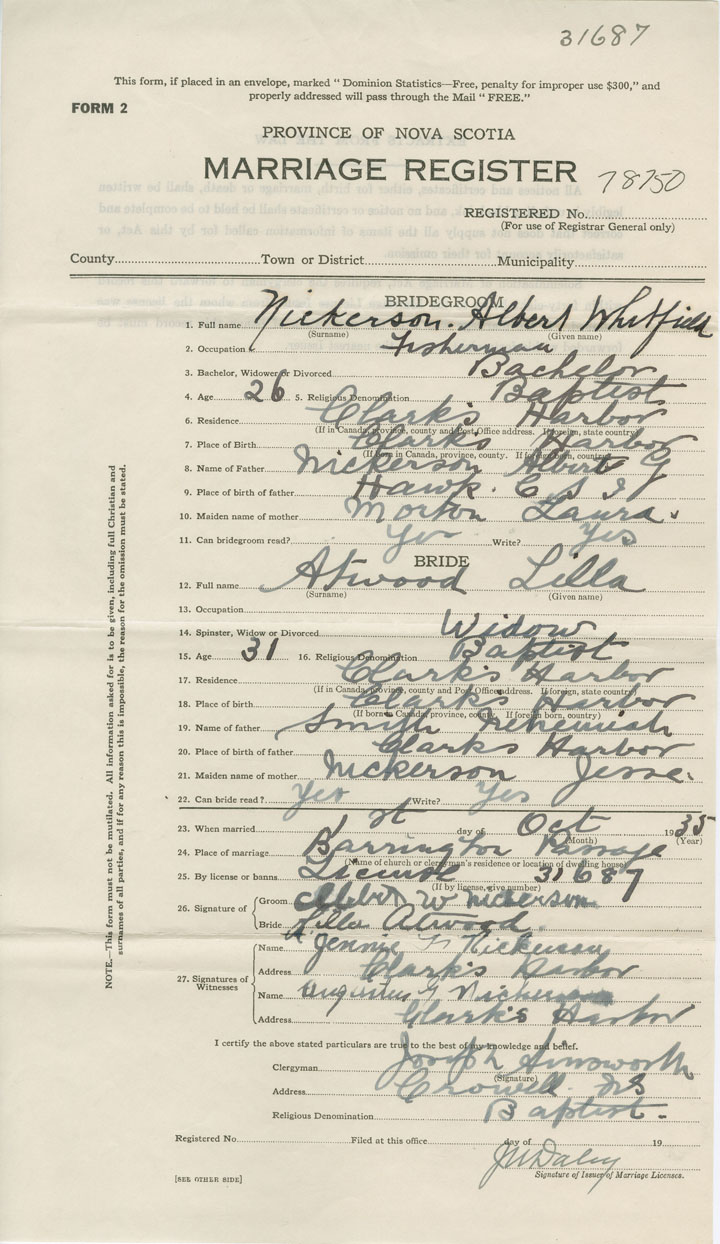 31687
This form, if placed in an envelope, marked " Dominion Statistics—Free, penalty for improper use $300," and
properly addressed will pass through the Mail " FREE."
FORM 2
PROVINCE OF NOVA SCOTIA
MARRIAGE REGISTER
78750
REGISTERED No.
(For use of Registrar General only)
County Town or District Municipality
BRIDEGROOM
1. Full name Nickerson. Albert Whitfield
(Surname) (Given name)
2. Occupation Fisherman
3. Bachelor, Widower or Divorced Bachelor
4. Age 26 5. Religious Denomination Baptist
6. Residence Clark's Harbor
(If in Canada, province, county and Post Office address. If foreign, state country)
7. Place of Birth Clark's Harbor
(If born in Canada, province, county. If foreign born, country)
8. Name of Father Nickerson Albert G
9. Place of birth of father Hawk. C S I
10. Maiden name of mother Morton Laura.
11. Can bridegroom read? Yes Write? Yes
BRIDE
12. Full name Atwood Lilla
(Surname) (Given name)
13. Occupation
14. Spinster, Widow or Divorced Widow
15. Age 31 16. Religious Denomination Baptist
17. Residence Clark's Harbor
(If in Canada, province, county and Post Office address. If foreign, state country)
18. Place of birth Clark's Harbor
(If born in Canada, province, county. If foreign born, country)
19. Name of father Smith Nehemiah
20. Place of birth of father Clarks Harbor
21. Maiden name of mother Nickerson Jesse.
22. Can bride read? Yes Write? Yes
23. When married 1st day of Oct 1935
(Month) (Year)
24. Place of marriage Barrington Passage
(Name of church or clergyman's residence or location of dwelling house)
25. By license or banns License 31687
(If by license, give number)
26. Signature of Groom Albert W Nickerson
Bride Lilla Atwood.
27. Signatures of Witnesses Name Jennie Nickerson
Address Clark's Harbor
Name Augustus G Nickerson
Address Clark's Harbor
I certify the above stated particulars are true to the best of my knowledge and belief.
Clergyman Joseph Ainsworth
(Signature)
Address Crowell NS
Religious Denomination Baptist.
Registered No. Filed at this office day of 19
JM Daley
Signature of Issuer of Marriage Licenses.
[SEE OTHER SIDE]
NOTE.—This form must not be mutilated. All information asked for is to be given, including full Christian and
surnames of all parties, and if for any reason this is impossible, the reason for the omission must be stated.